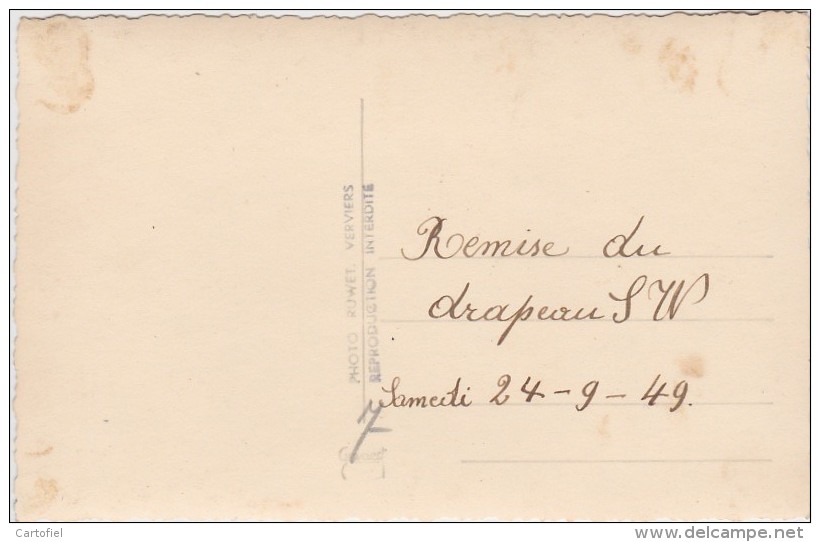 PHOTO RUWET. VERVIERS
REPRODUCTION INTERDITE
Remise du
drapeau SW
Samedi 24-9-49.
7
Cartofiel
www.delcampe.net